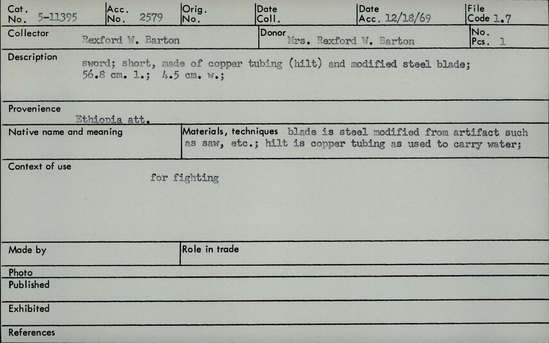 Cat. No. 5-11395 Acc. No. 2579 Orig. No. Date Coll. Date Acc. 12/18/69 File Code 1.7
Collector Rexford W. Barton Donor Mrs. Rexford W. Barton No. Pcs. 1
Description sword; short, made of copper tubing (hilt) and modified steel blade;
56.8 cm. l.; 4.5 cm. w.;
Provenience
Ethiopia att.
Native name and meaning Materials, techniques blade is steel modified from artifact such
as saw, etc.; hilt is copper tubing as used to carry water;
Context of use
for fighting
Made by Role in trade
Photo
Published
Exhibited
References